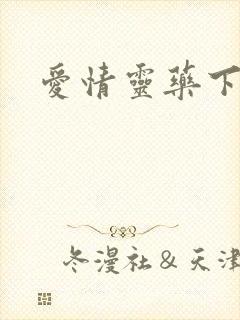 愛情靈藥下
冬漫社＆天津